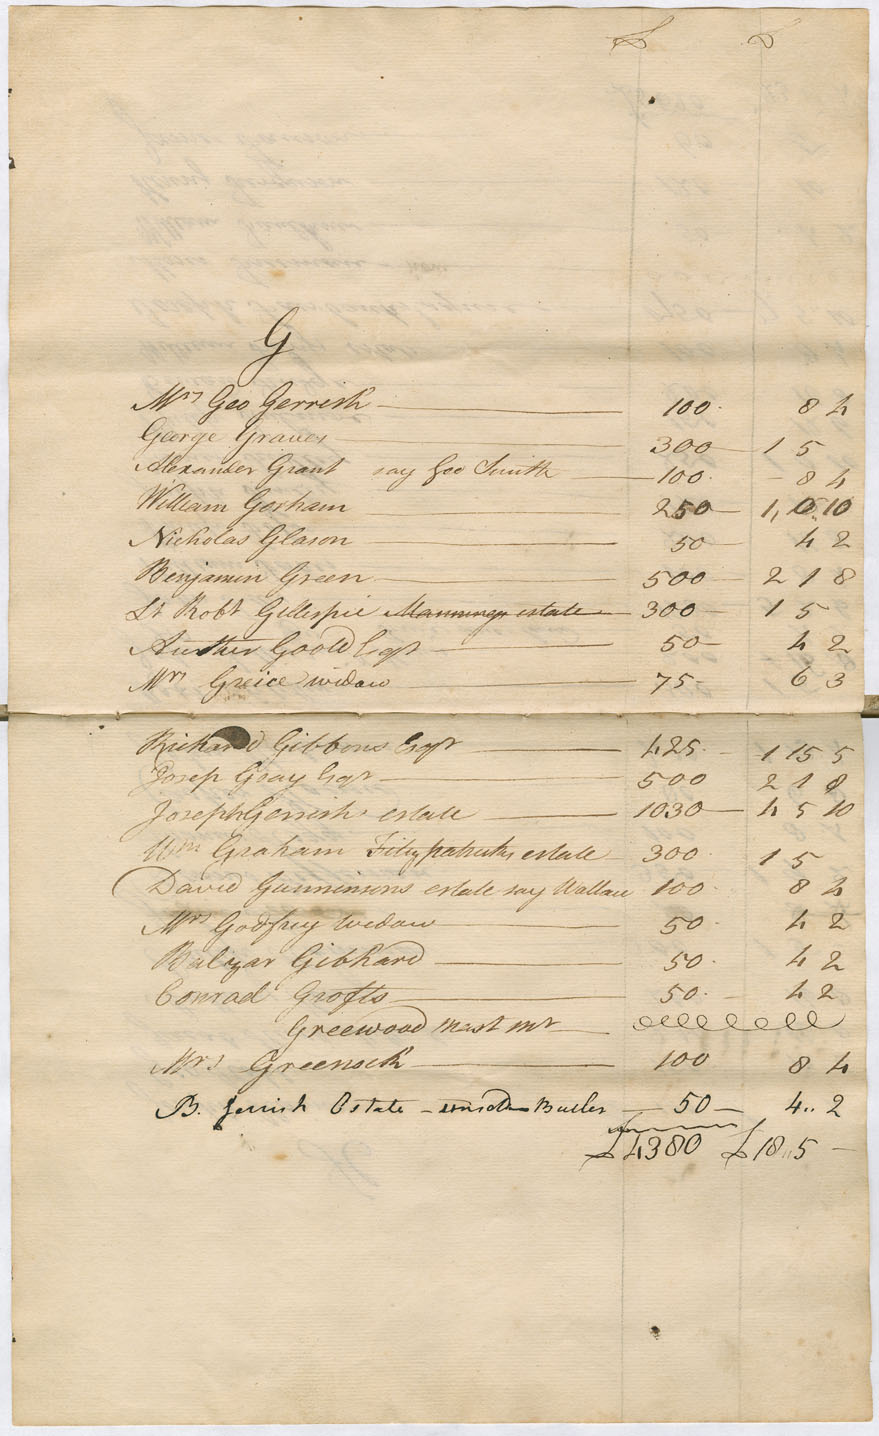 £ £
G
Mrs Geo Gerrish 100 8 4
George Graves 300 1 5
Alexander Grant say Geo Smith 100 8 4
William Gorham 250 1, 0,, 10
Nicholas Glason 50 4 2
Benjamin Green 500 2 1 8
Lt Robt Gillespie Mannings estate 300 1 5
Auther Goold Esqr 50 4 2
Mrs Greice widow 75 6 3
Richard Gibbons Esqr 425 1 15 5
Josep Gray Esqr 500 2 1 8
Joseph Gerrish estate 1030 4 5 10
Wm Graham Fitzpatricks estate 300 1 5
David Gunninsons estate say Wallace 100 8 4
Mrs Godfrey widow 50 4 2
Balzar Gebhard 50 4 2
Conrad Grofts 50 4 2
Greewood mast mr
Mrs Greenock 100 8 4
B. Gerrish Estate Butler 50 4,, 2
£4380 £18,, 5 —